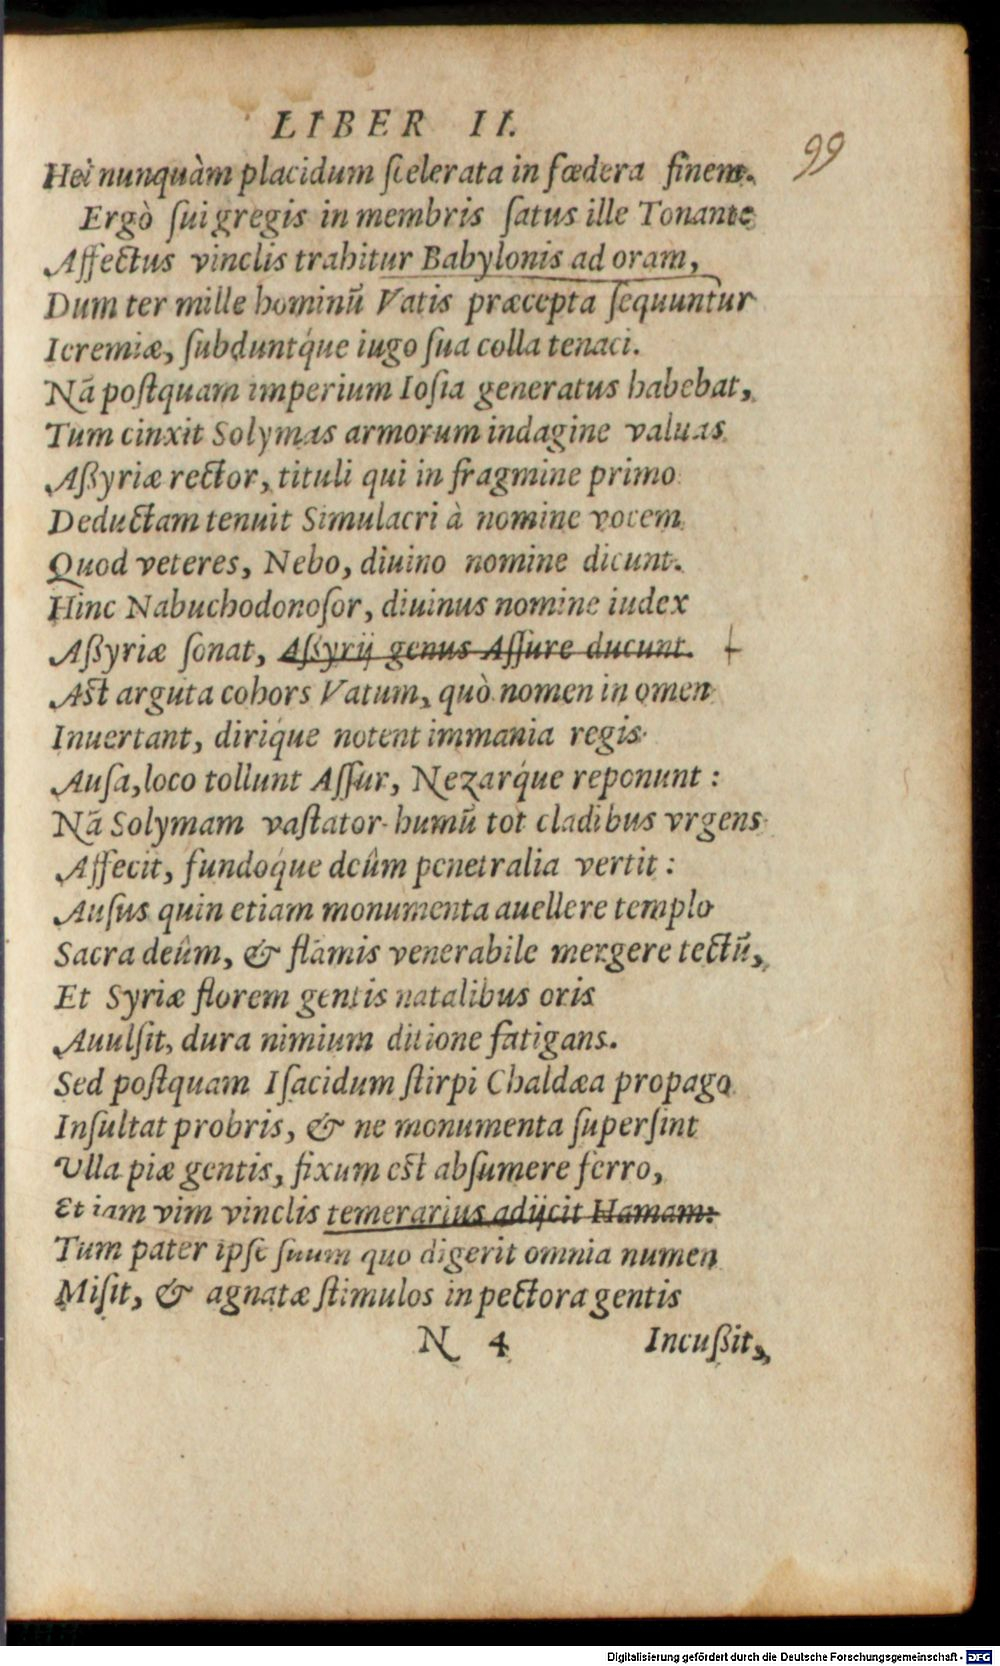 LIBER II.
99
Hei nunquàm placidum scelerata in fœdera finem.
Ergò sui gregis in membris satus ille Tonante
Affectus vinclis trahitur Babylonis ad oram,
Dum ter mille hominũ Vatis præcepta sequuntur
Ieremiæ, subduntq́ue iugo sua colla tenaci.
Nã postquam imperium Iosia generatus habebat,
Tum cinxit Solymas armorum indagine valuas
Aßyriæ rector, tituli qui in fragmine primo
Deductam tenuit Simulacri à nomine vocem
Quod veteres, Nebo, diuino nomine dicunt.
Hinc Nabuchodonosor, diuinus nomine iudex
Aßyriæ sonat, Aßyrij genus Assure ducunt.
Ast arguta cohors Vatum, quò nomen in omen
Inuertant, diriq́ue notent immania regis
Ausa, loco tollunt Assur, Nezarq́ue reponunt:
Nã Solymam vastator humũ tot cladibus vrgens
Affecit, fundoq́ue deûm penetralia vertit:
Ausus quin etiam monumenta auellere templo
Sacra deûm, & flãmis venerabile mergere tectũ,
Et Syriæ florem gentis natalibus oris
Auulsit, dura nimium ditione fatigans.
Sed postquam Isacidum stirpi Chaldæa propago
Insultat probris, & ne monumenta supersint
Vlla piæ gentis, fixum est absumere ferro,
Et iam vim vinclis temerarius adijcit Hamam:
Tum pater ipse suum quo digerit omnia numen
Misit, & agnatæ stimulos in pectora gentis
N 4 Incußit,
Digitalisierung gefördert durch die Deutsche Forschungsgemeinschaft - DFG